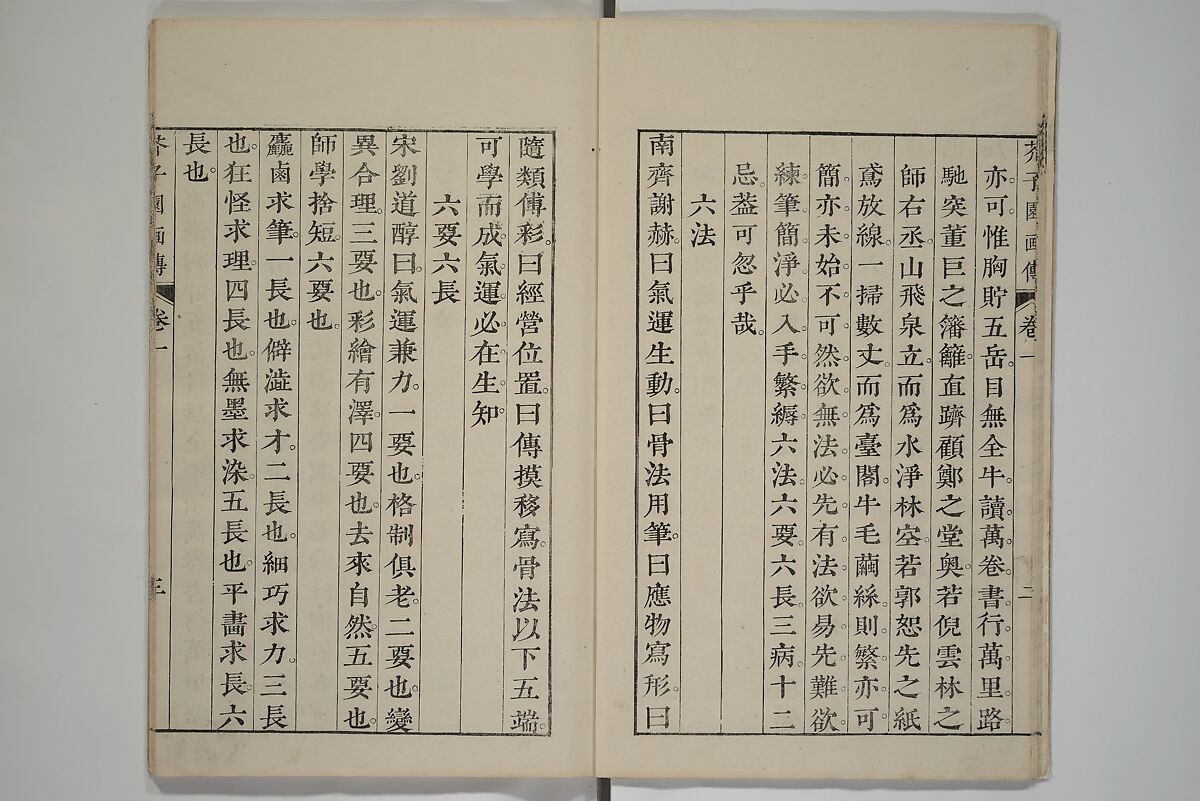 芥子園画傳 卷一 二
亦可惟胸貯五岳目無全牛讀萬卷書行萬里路
馳突董巨之籓籬直躋顧鄭之堂奥若倪雲林之
師右丞山飛泉立而爲水淨林空若郭恕先之紙
鳶放線一掃數丈而爲臺閣牛毛繭絲則繁亦可
簡亦未始不可然欲無法必先有法欲易先難欲
練筆簡淨必入手繁縟六法六要六長三病十二
忌葢可忽乎哉
六法
南齊謝赫曰氣運生動曰骨法用筆曰應物寫形曰
隨類傅彩曰經營位置曰傳摸移寫骨法以下五端
可學而成氣運必在生知
六要六長
宋劉道醇曰氣運兼力一要也格制俱老二要也變
異合理三要也彩繪有澤四要也去來自然五要也
師學捨短六要也
麤鹵求筆一長也僻澁求才二長也細巧求力三長
也狂怪求理四長也無墨求染五長也平畵求長六
長也
芥子園画傳 卷一 三